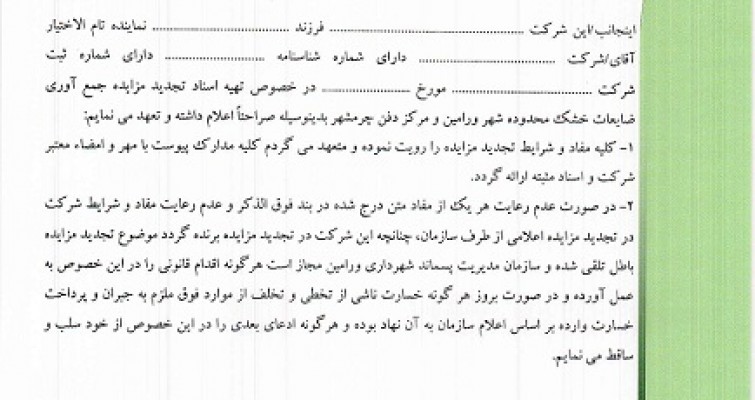 اینجانب/این شرکت ........................................ فرزند ............................ نماینده تام الاختیار
آقای/شرکت ............................ دارای شماره شناسنامه .................... دارای شماره ثبت
شرکت ............................ مورخ .................. در خصوص تهیه اسناد تجدید مزایده جمع آوری
ضایعات خشک محدوده شهر ورامین و مرکز دفن چرمشهر بدینوسیله صراحتاً اعلام داشته و تعهد می نمایم:
۱- کلیه مفاد و شرایط تجدید مزایده را رویت نموده و متعهد می گردم کلیه مدارک پیوست با مهر و امضاء معتبر
شرکت و اسناد مثبته ارائه گردد.
۲- در صورت عدم رعایت هر یک از مفاد متن درج شده در بند فوق الذکر و عدم رعایت مفاد و شرایط شرکت
در تجدید مزایده اعلامی از طرف سازمان، چنانچه این شرکت در تجدید مزایده برنده گردد موضوع تجدید مزایده
باطل تلقی شده و سازمان مدیریت پسماند شهرداری ورامین مجاز است هرگونه اقدام قانونی را در این خصوص به
عمل آورده و در صورت بروز هر گونه خسارت ناشی از تخطی و تخلف از موارد فوق ملزم به جبران و پرداخت
خسارت وارده بر اساس اعلام سازمان به آن نهاد بوده و هرگونه ادعای بعدی را در این خصوص از خود سلب و
ساقط می نمایم.